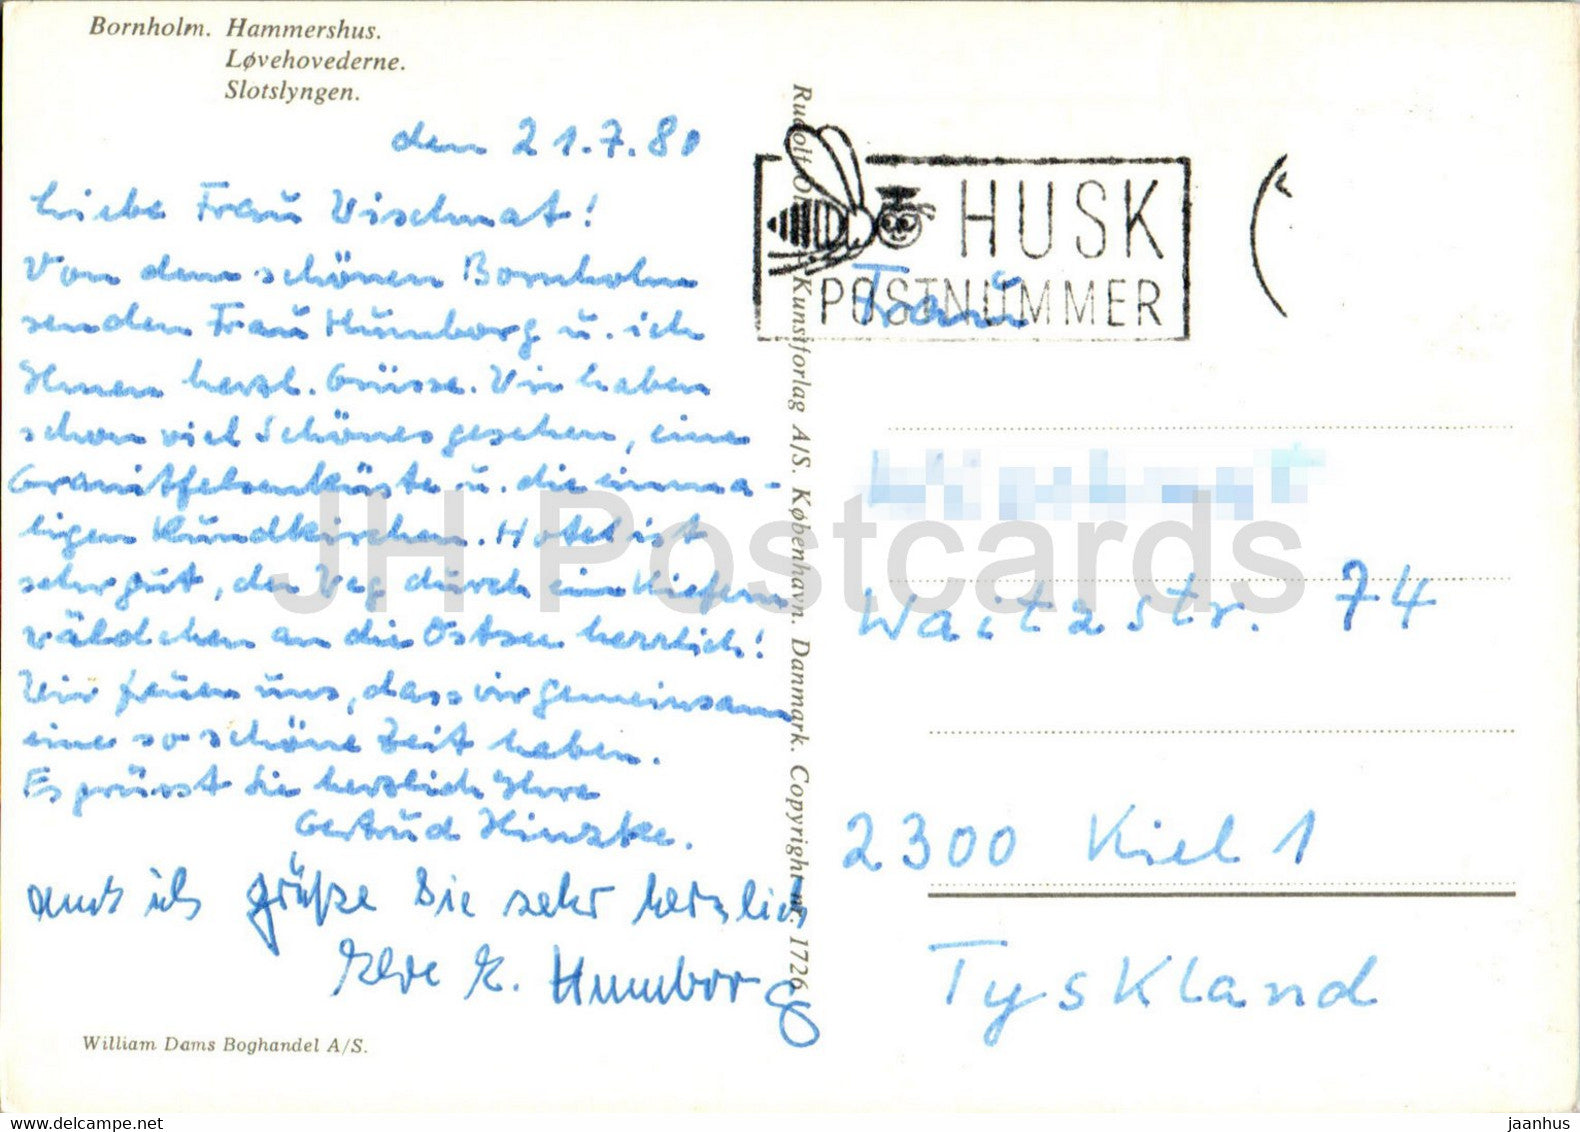 Bornholm. Hammershus.
Løvehovederne.
Slotslyngen.
den 21.7.80
Liebe Frau Wischnat!
Von dem schönen Bornholm
senden Frau Humborg u. ich
Ihnen herzl. Grüsse. Wir haben
schon viel Schönes gesehen, eine
Granitfelsenküste u. die einma-
ligen Rundkirchen. Hotel ist
sehr gut, der Weg durch ein Kiefern
wäldchen an die Ostsee herrlich!
Wir freuen uns, dass wir gemeinsam
eine so schöne Zeit haben.
Es grüsst Sie herzlich Ihre
Gertrud Hinzke.
auch ich grüße Sie sehr herzlich
Ihre E. Humborg
William Dams Boghandel A/S.
Kunstforlag A/S. København. Danmark. Copyright nr. 1726
HUSK
POSTNUMMER
Frau
Waitzstr. 74
2300 Kiel 1
Tyskland
JH Postcards
www.delcampe.net
jaanhus